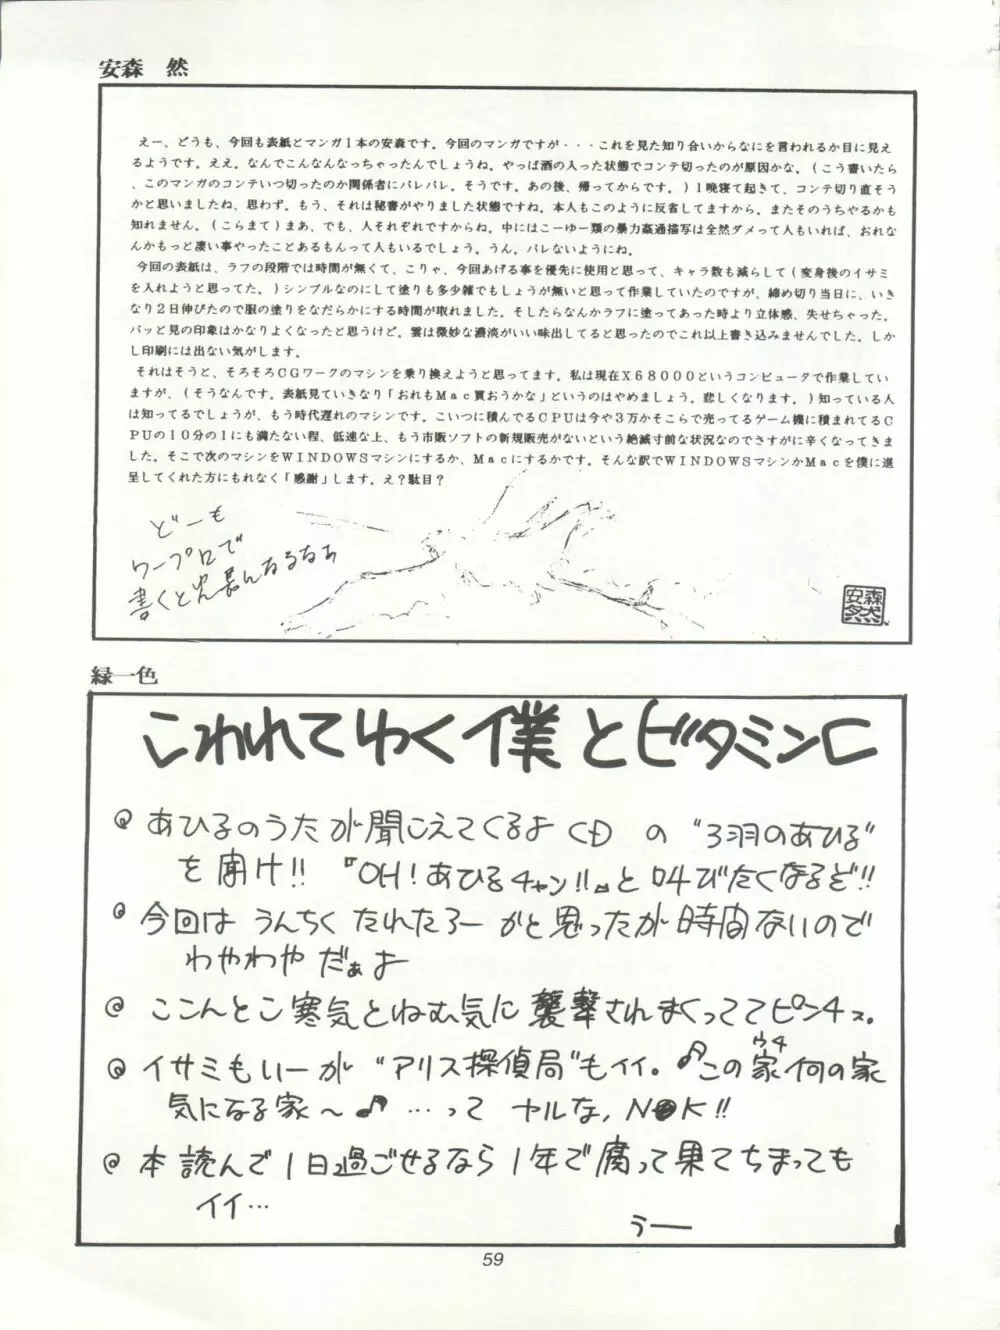 安森　然
えー、どうも、今回も表紙とマンガ１本の安森です。今回のマンガですが・・・これを見た知り合いからなにを言われるか目に見え
るようです。ええ。なんでこんなんなっちゃったんでしょうね。やっぱ酒の入った状態でコンテ切ったのが原因かな。（こう書いたら
、このマンガのコンテいつ切ったのか関係者にバレバレ。そうです。あの後、帰ってからです。）１晩寝て起きて、コンテ切り直そう
かと思いましたね、思わず。もう、それは秘書がやりました状態ですね。本人もこのように反省してますから。またそのうちやるかも
知れません。（こらまて）まあ、でも、人それぞれですからね。中にはこーゆー類の暴力姦通描写は全然ダメって人もいれば、おれな
んかもっと凄い事やったことあるもんって人もいるでしょう。うん。バレないようにね。
今回の表紙は、ラフの段階では時間が無くて、こりゃ、今回あげる事を優先に使用と思って、キャラ数も減らして（変身後のイサミ
を入れようと思ってた。）シンプルなのにして塗りも多少雑でもしょうが無いと思って作業していたのですが、締め切り当日に、いき
なり２日伸びたので服の塗りをなだらかにする時間が取れました。そしたらなんかラフに塗ってあった時より立体感、失せちゃった。
パッと見の印象はかなりよくなったと思うけど。雲は微妙な濃淡がいい味出してると思ったのでこれ以上書き込みませんでした。しか
し印刷には出ない気がします。
それはそうと、そろそろＣＧワークのマシンを乗り換えようと思ってます。私は現在Ｘ６８０００というコンピュータで作業してい
ますが、（そうなんです。表紙見ていきなり「おれもＭａｃ買おうかな」というのはやめましょう。悲しくなります。）知っている人
は知ってるでしょうが、もう時代遅れのマシンです。こいつに積んでるＣＰＵは今や３万かそこらで売ってるゲーム機に積まれてるＣ
ＰＵの１０分の１にも満たない程、低速な上、もう市販ソフトの新規販売がないという絶滅寸前な状況なのでさすがに辛くなってきま
した。そこで次のマシンをＷＩＮＤＯＷＳマシンにするか、Ｍａｃにするかです。そんな訳でＷＩＮＤＯＷＳマシンかＭａｃを僕に進
呈してくれた方にもれなく「感謝」します。え？駄目？
どーも
ワープロで
書くと文長んなるなぁ
安森然
緑一色
こわれてゆく僕とビタミンC
@ あひるのうたが聞こえてくるよ CD の “3羽のあひる”
を聞け!! 『OH! あひるチャン!!』と叫びたくなるぞ!!
@ 今回は うんちく たれたろー かと思ったが時間ないので
わやわや だぁよ
@ ここんとこ寒気とねむ気に襲撃されまくっててピンチっス。
@ イサミもいーが “アリス探偵局”もイイ。♪この家(ウチ)何の家
気になる家～♪ …って ヤルな, N●K!!
@ 本読んで1日過ごせるなら1年で腐って果てちまっても
イイ…
うー
59